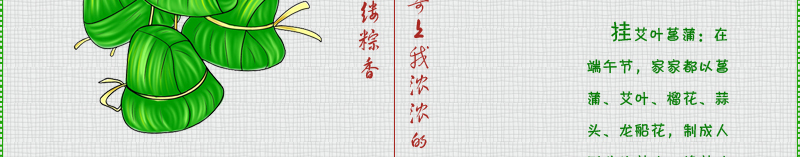 缕粽香
上我浓浓的
挂艾叶菖蒲：在
端午节，家家都以菖
蒲、艾叶、榴花、蒜
头、龙船花，制成人